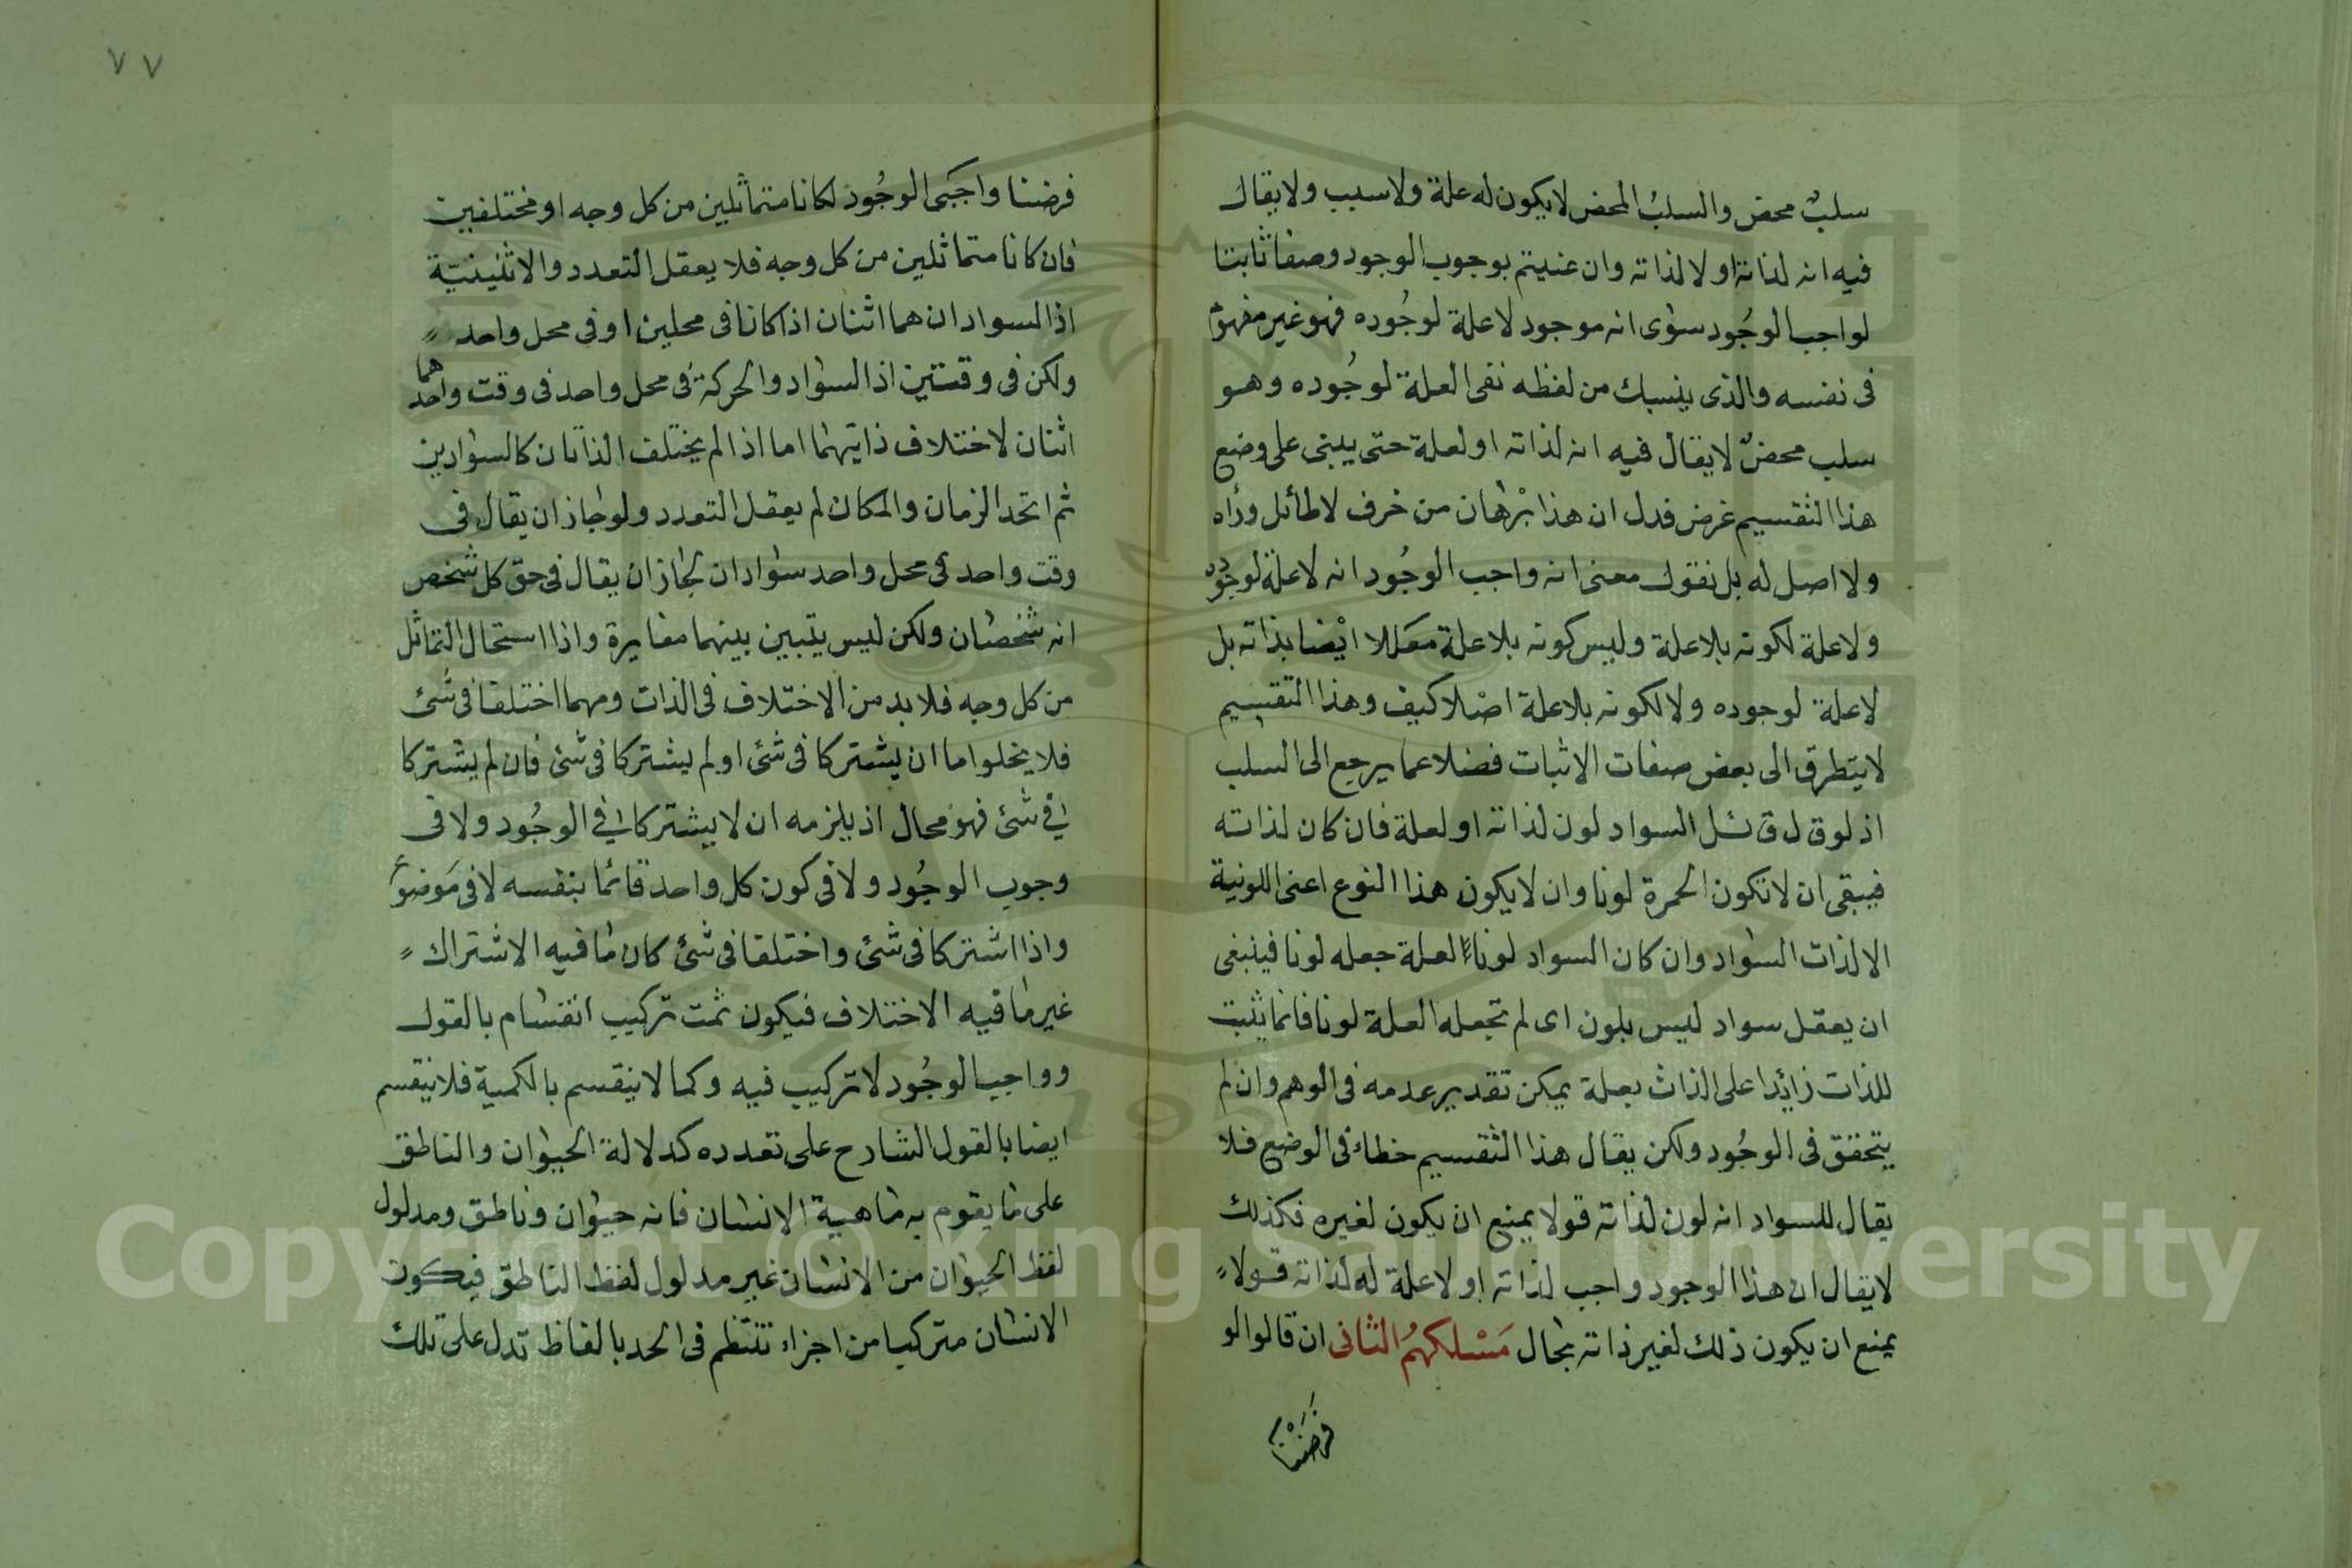 سلبٌ محض والسلبُ المحض لا يكون له علة ولا سبب ولا يقال
فيه انه لذاته او لا لذاته وان عنيتم بوجوب الوجود وصفا ثابتا
لواجب الوجُود سوٰى انه موجود لا علة لوجُوده فهو غير مفهومٌ
فى نفسه والذى ينسبك من لفظه نفى العلة لوجُوده وهو
سلب محضٌ لا يقال فيه انه لذاته او لعلة حتى يبنى على وضع
هذا التقسيم غرض فدل ان هذا برْهٰان من خرف لا طائل وراه
ولا اصل له بل نقول معنى انه واجب الوجُود انه لا علة لوجوده
ولا علة لكونه بلا علة وليس كونه بلا علة معَللا ايْضا بذاته بل
لا علة لوجوده ولا لكونه بلا علة اصْلا كيف وهذا التقسيم
لا يتطرق الى بعض صفات الاثبات فضلا عما يرجع الى السلب
اذ لو قال قائل السواد لون لذاته او لعلة فان كان لذاته
فيبقى ان لا تكون الحمرة لونا وان لا يكون هذا النوع اعنى اللونية
الا لذات السٰواد وان كان السواد لوناً لعلة جعله لونا فينبغى
ان يعقل سواد ليس بلون اى لم تجعله العلة لونا فانما يثبت
للذات زائدا على الذات بعلة يمكن تقدير عدمه فى الوهم وان لم
يتحقق فى الوجُود ولكن يقال هذا التقسيم خطاء فى الوضع فلا
يقال للسواد انه لون لذاته قولا يمنع ان يكون لغيره فكذلك
لا يقال ان هذا الوجود واجب لذاته او لا علة له لذاته قولاً
يمنع ان يكون ذلك لغير ذاته بحال مَسْلكهُم الثانى ان قالوا لو
فرَضْنا
٧٧
فرضنا واجبَى الوجُود لكانا متماثلين من كل وجه او مختلفين
فان كانا متماثلين من كل وجه فلا يعقل التعدد والاثنينيّة
اذ السوادان هما اثنان اذا كانا فى محلين او فى محل واحد
ولكن فى وقتين اذ السٰواد والحركة فى محل واحد فى وقت واحد هما
اثنان لاختلاف ذاتيهمٰا اما اذا لم يختلف الذاتان كالسوٰادين
ثم اتحد الزمان والمكان لم يعقل التعدد ولو جٰاز ان يقال فى
وقت واحد فى محل واحد سٰوادان لجٰاز ان يقال فى حق كل شخص
انه شخصٰان ولكن ليس يتبين بينهما مغايرة واذا استحال التماثل
من كل وجه فلا بد من الاختلاف فى الذات ومهما اختلفا فى شئ
فلا يخلوا اما ان يشتركا فى شئ او لم يشتركا فى شئ فان لم يشتركا
فى شئ فهو محال اذ يلزمه ان لا يشتركا فى الوجُود ولا فى
وجوب الوجُود ولا فى كون كل واحد قائما بنفسه لا فى موضوع
واذا اشتركا فى شئ واختلفا فى شئ كان مٰا فيه الاشتراك
غير مٰا فيه الاختلاف فيكون ثمت تركيب انقسٰام بالقول
وواجب الوجُود لا تركيب فيه وكما لا ينقسم بالكمية فلا ينقسم
ايضا بالقول الشارح على تعدده كدلالة الحيوٰان والناطق
على مٰا يقوم به مٰاهية الانسٰان فانه حيوٰان وناطق ومدلول
لفظ الحيوٰان من الانسٰان غير مدلول لفظ الناطق فيكون
الانسٰان متركبا من اجزاء تنتظم فى الحد بالفاظ تدل على تلك
Copyright © King Saud University